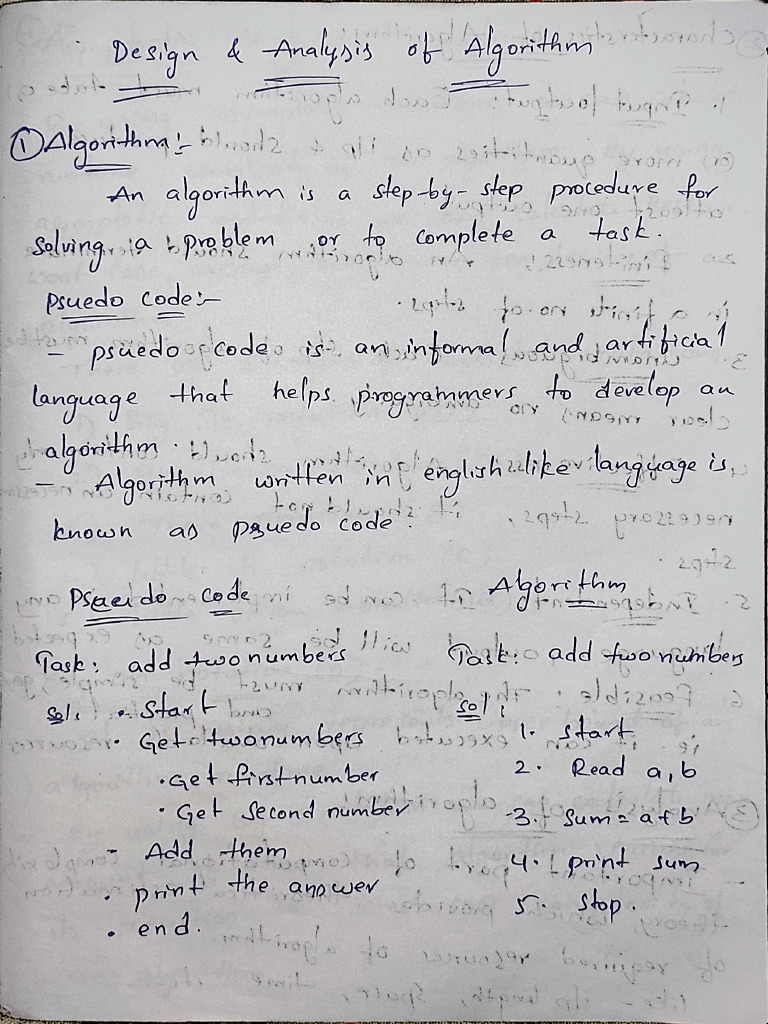 Design & Analysis of Algorithm
① Algorithm:-
An algorithm is a step-by-step procedure for
solving a problem or to complete a task.
Psuedo code:-
- psuedo code is an informal and artificial
language that helps programmers to develop an
algorithm.
- Algorithm written in english like language is
known as psuedo code.
Pseudo code
Task: add two numbers
sol:
• Start
• Get two numbers
• Get first number
• Get second number
- Add them
• print the answer
• end.
Algorithm
Task: add two numbers
sol:
1. start
2. Read a, b
3. Sum = a+b
4. print sum
5. stop.